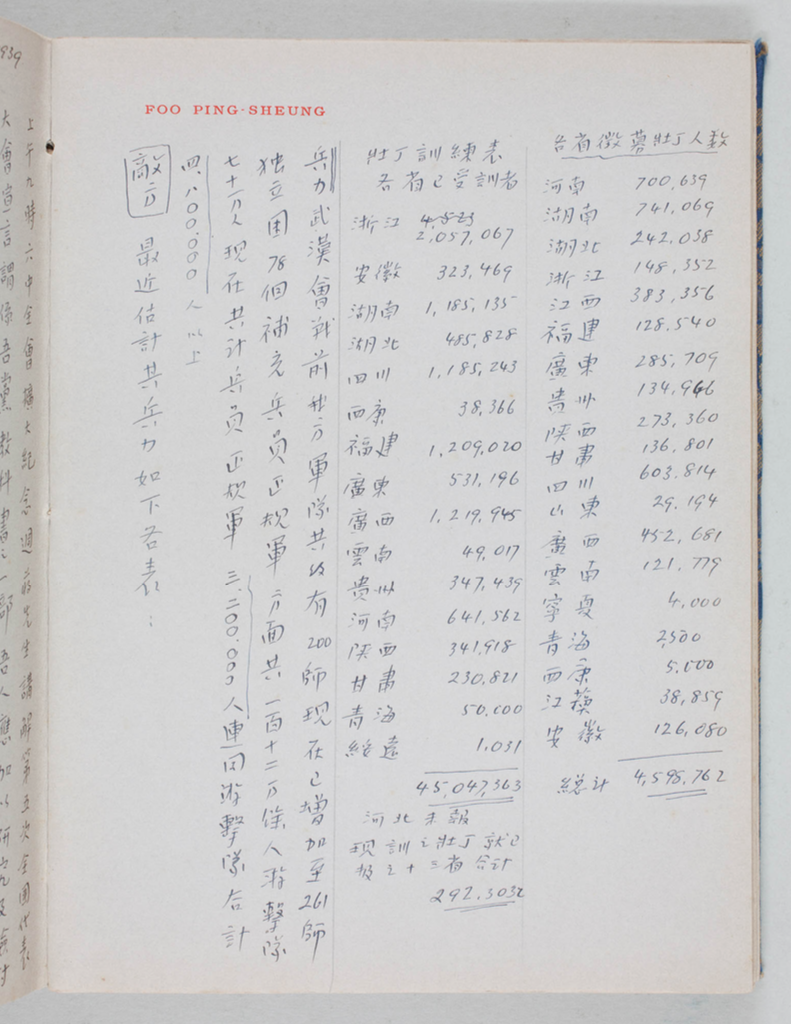 FOO PING-SHEUNG
各省徵募壯丁人数
河南 700,639
湖南 741,069
湖北 242,038
浙江 148,352
江西 383,356
福建 128,540
廣東 285,709
貴州 134,946
陝西 273,360
甘肅 136,801
四川 603,814
山東 29,194
廣西 452,681
雲南 121,779
寧夏 4,000
青海 2,500
西康 5,000
江蘇 38,859
安徽 126,080
總計 4,598,762
壯丁訓練表
各省已受訓者
浙江 2,057,067
安徽 323,469
湖南 1,185,135
湖北 485,828
四川 1,185,243
西康 38,366
福建 1,209,020
廣東 531,196
廣西 1,219,945
雲南 49,017
貴州 347,439
河南 641,562
陝西 341,918
甘肅 230,821
青海 50,000
綏遠 1,031
45,047,363
河北未報
現訓之壯丁就已
报之十三省合計
292,303
兵力武漢會戰前我方軍隊共約有200師現在已增加至261師
独立團78個補充兵員正規軍方面共一百十二万餘人游擊隊
七十一万人現在共計兵員正規軍三二〇〇.〇〇〇人連同游擊隊合計
四,八〇〇.〇〇〇人以上
敵方 最近估計其兵力如下各表：
939
上午九時六中全會擴大紀念週蔣先生講解第五次全國代表
大會宣言謂係吾黨教科書之一部吾人應加以研究及檢討